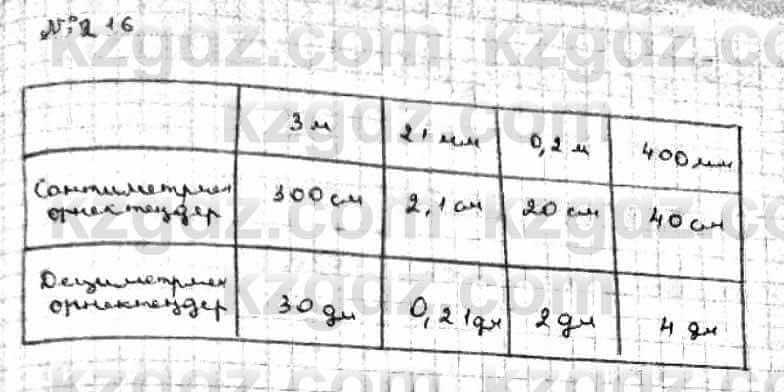 № 216
3 м 21 мм 0,2 м 400 мм
Сантиметрмен 300 см 2,1 см 20 см 40 см
өрнектеңдер
Дециметрмен
өрнектеңдер 30 дм 0,21 дм 2 дм 4 дм
kzgdz.com